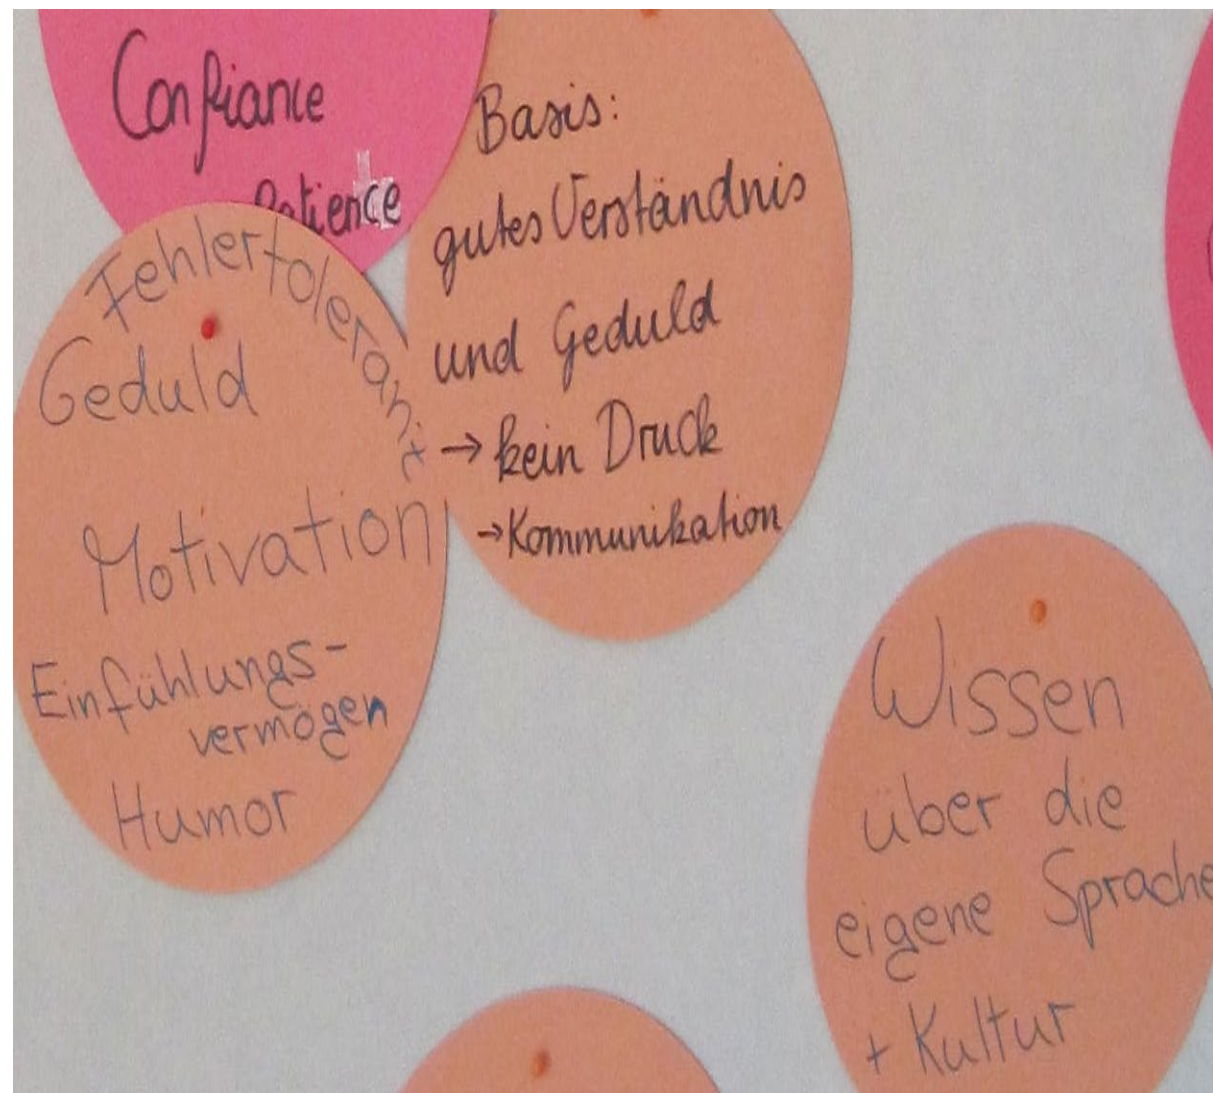 Confiance
Patience
Basis:
gutes Verständnis
und Geduld
→ kein Druck
→ Kommunikation
Fehlertoleranz
Geduld
Motivation
Einfühlungs-
vermögen
Humor
Wissen
über die
eigene Sprache
+ Kultur